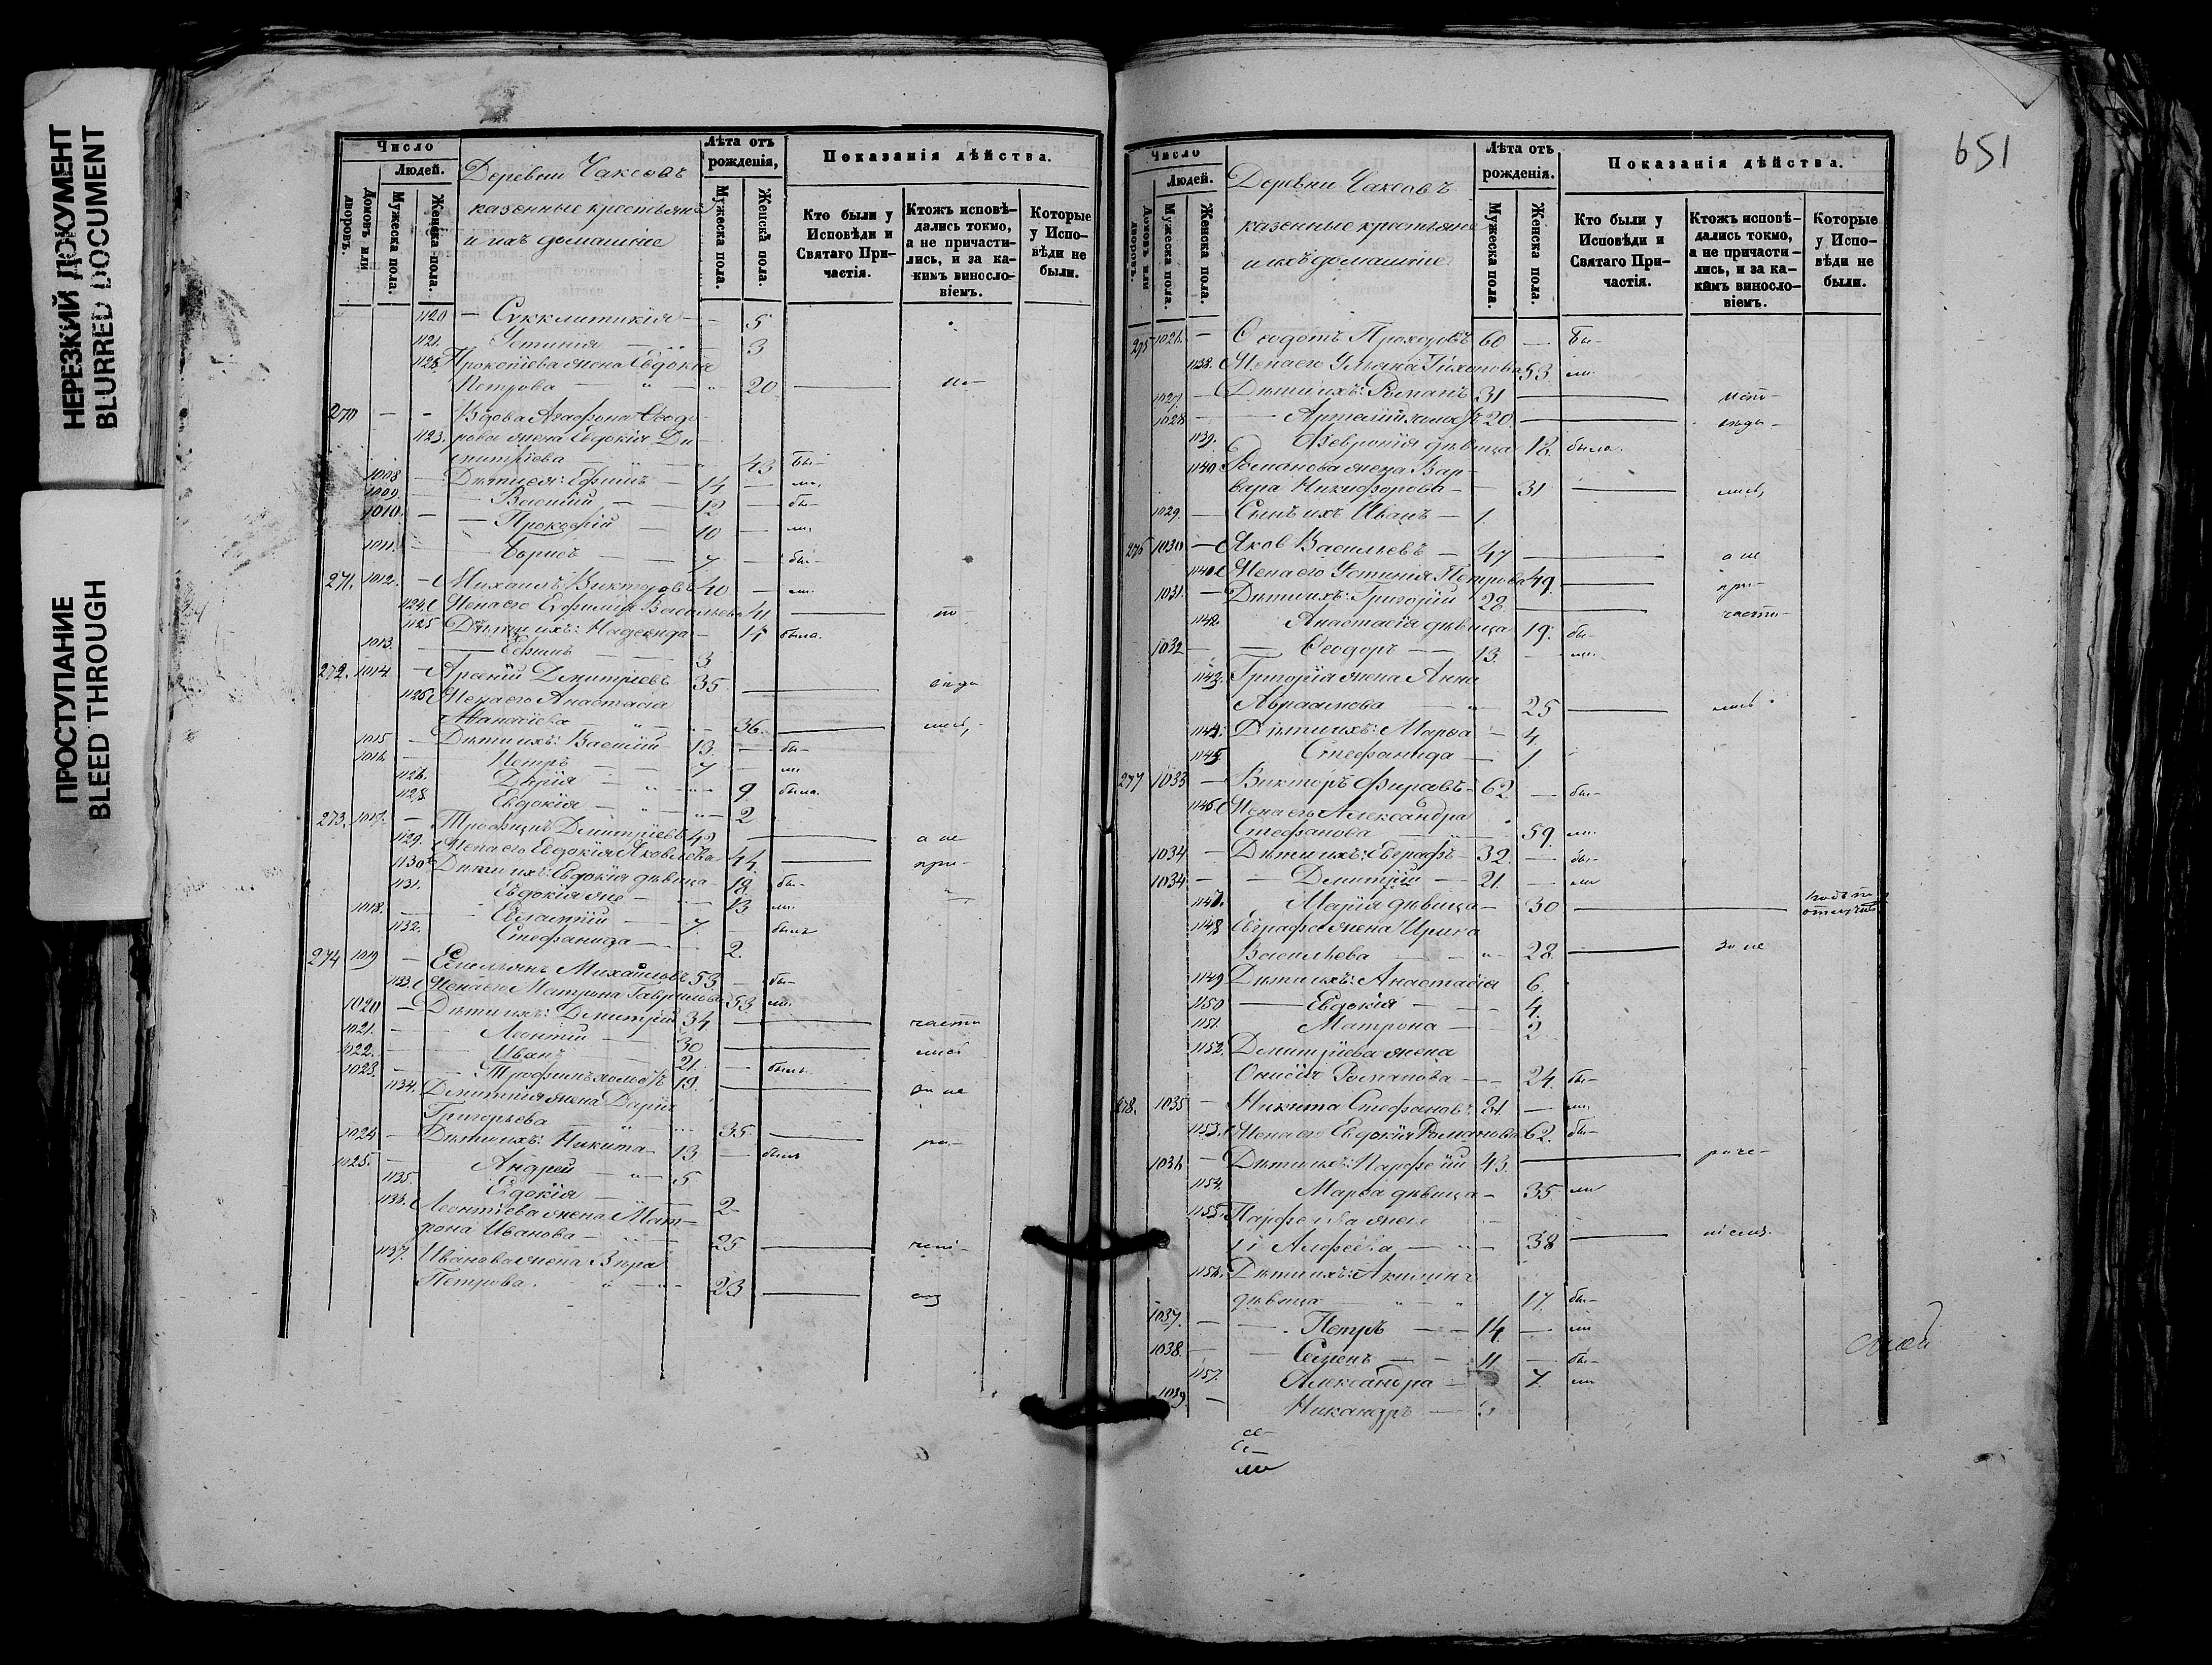 НЕРЕЗКИЙ ДОКУМЕНТ
BLURRED DOCUMENT
ПРОСТУПАНИЕ
BLEED THROUGH
Число
Людей.
Домовъ или дворовъ.
Мужеска пола.
Женска пола.
Деревни Чаксовъ
казенные крестьяне
и ихъ домашніе
Лѣта отъ рожденія,
Мужеска пола.
Женска пола.
Показанія дѣйства.
Кто были у Исповѣди и Святаго Причастія.
Ктожъ исповѣ-
дались токмо,
а не причасти-
лись, и за ка-
кимъ винносло-
віемъ.
Которые
у Испо-
вѣди не
были.
1120 — 5
1121. Устинія — 3
1122 Прокопіева жена Евдокія
Петрова — 20
270 — - Вдова Ѳеодо-
1123. рова жена Евдокія Ди-
митріева — 43 Бы-
1008 — Дѣти ея: Ефимъ — 14 — ли,
1009 — Василій — 12 — бы-
1010. — Прокофій — 10 — ли
1011. — Борисъ — 7 — бы-
271. 1012. — Михаилъ Викторовъ 40 — ли.
1124. Жена его Евфимія Васильева 41
1125 Дѣти ихъ: Надежда — 11 была.
1013. — Ефимъ — 3
272. 1014 — Арсеній Димитріевъ 35
1125. Жена его Анастасія
Аѳанасіева — 36.
1015 — Дѣти ихъ: Василій 13. — бы-
1016 — Петръ — 7 — ли
1126. Дарія — 9 была.
1128. Евдокія — 2
273. 1017. — Трофимъ Димитріевъ 42 а не
1129. Жена его Евдокія Яковлева 44. при-
1130. Дѣти ихъ: Евдокія дѣвица 18 бы-
1131. Евдокія же — 13 ли.
1018. — 7. — былъ
1132. Стефанида — 2.
274 1019 — Емельянъ Михайловъ 53 — бы-
1133. Жена его Матрона Гаврилова 53 ли.
1020 — Дѣти ихъ: Димитрій 34 части
1021. — Леонтій — 30
1022. — Иванъ — 21. — былъ.
1023. — Трофимъ холостъ 19. за не
1134. Димитрія жена Дарія
Григорьева — 35.
1024 — Дѣти ихъ: Никита 13. — былъ
1025. — Андрей — 5
1135 Евдокія — 2
1136. Леонтіева жена Мат-
рона Иванова — 25
1137. Иванова жена Вѣра
Петрова. — 23
651
Число
Людей.
Домовъ или дворовъ.
Мужеска пола.
Женска пола.
Деревни Чаксовъ
казенные крестьяне
и ихъ домашніе
Лѣта отъ рожденія.
Мужеска пола.
Женска пола.
Показанія дѣйства.
Кто были у Исповѣди и Святаго Причастія.
Ктожъ исповѣ-
дались токмо,
а не причасти-
лись, и за ка-
кимъ винносло-
віемъ.
Которые
у Испо-
вѣди не
были.
275 1026. — Ѳеодотъ Прохоровъ 60 — Бы-
1138. Жена его Ульяна Тихонова 53 ли.
1027 — Дѣти ихъ: Романъ 31 испо-
1028 — Артемій холостъ 20. вѣда-
1139. Февронія дѣвица 18. была.
1140 Романова жена Вар-
вара Никифорова — 31 лись,
1029. — Сынъ ихъ Иванъ — 1.
276 1030 — Яковъ Васильевъ — 47 а не
Жена его Устинія Петрова 49. при-
1031. — Дѣти ихъ: Григорій 28. части-
1142 Анастасія дѣвица 19. бы-
1032 — Ѳеодоръ — 13. — ли.
1143. Григорія жена Анна
Авраамова — 25 лись
1144. Дѣти ихъ: Марѳа — 4.
1145. Стефанида — 1.
277 1033 — Викторъ Фирсовъ — 62. — бы-
1146. Жена его Александра
Стефанова — 59. ли.
1034 — Дѣти ихъ: Евграфъ 32. — бы-
1034 — Димитрій — 21. — ли
1147. Марія дѣвица — 30
1148 Евграфа жена Ирина
Васильева — 28. за не
1149 Дѣти ихъ: Анастасія 6.
1150 — Евдокія — 4.
1151. Матрона — 2
1152. Димитріева жена
Онисія Романова — 24. бы-
278. 1035 — Никита Стефановъ — ли.
1153. Жена его Евдокія Романова 62. бы-
1036 — Дѣти ихъ: Парфеній 43. раче-
1154. Марѳа дѣвица — 35. ли
1155. Парфеніева жена
Алфеева — 38 ніемъ.
1156. Дѣти ихъ: Акилина
дѣвица — 17. бы-
1037. — Петръ — 14 — ли
1038. — Семенъ — 11 — бы-
1157. Александра — 7. ли
1039. — Никандръ — 3